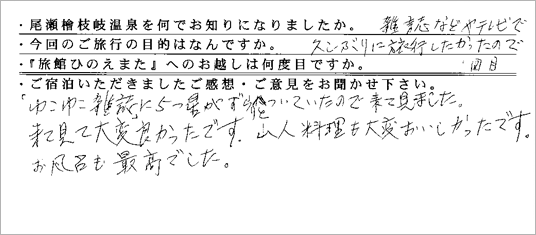 ・尾瀬檜枝岐温泉を何でお知りになりましたか。 雑誌などやテレビで
・今回のご旅行の目的はなんですか。 久しぶりに旅行したかったので
・『旅館ひのえまた』へのお越しは何度目ですか。 回目
・ご宿泊いただきましたご感想・ご意見をお聞かせ下さい。
「ゆこゆこ雑誌に5つ星が ついていたので来て見ました。
来て見て大変良かったです。山人料理も大変おいしかったです。
お風呂も最高でした。